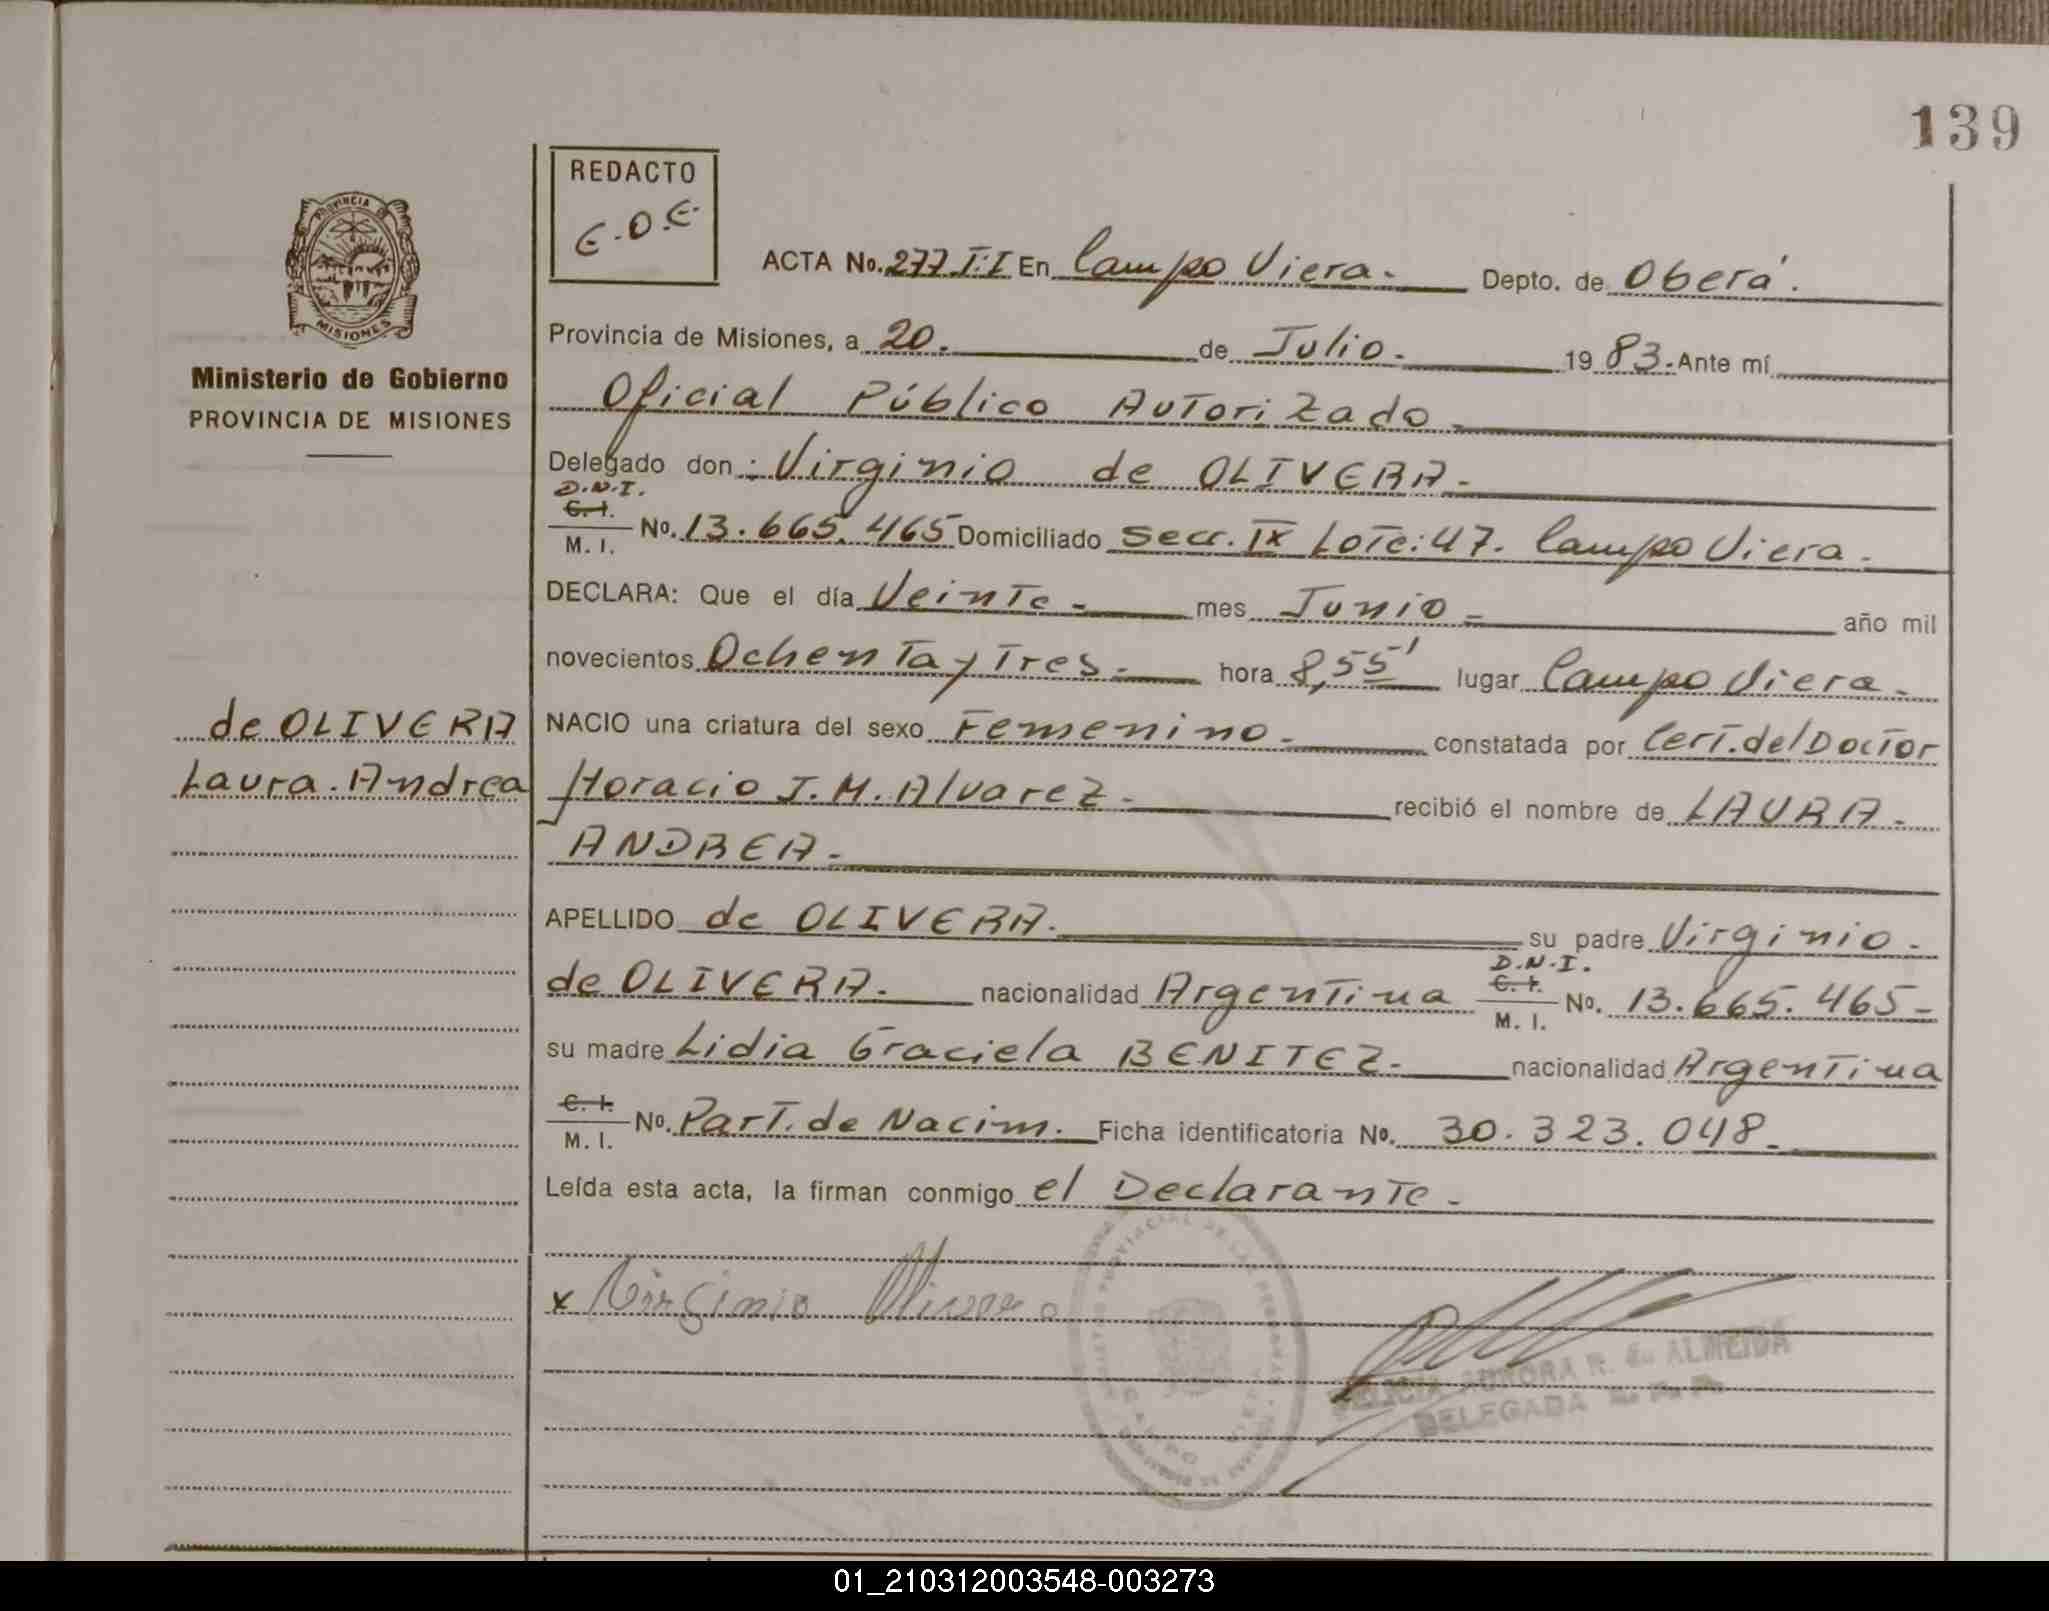 139
REDACTO
E.O.E.
PROVINCIA DE
MISIONES
Ministerio de Gobierno
PROVINCIA DE MISIONES
ACTA No. 277 T:I En Campo Viera.- Depto. de Oberá.
Provincia de Misiones, a 20. de Julio. 1983. Ante mí
Oficial Público Autorizado
Delegado don: Virginio de OLIVERA.-
D.N.I.
C. I.
M. I. No. 13.665.465 Domiciliado Secc. IX Lote: 47. Campo Viera.
DECLARA: Que el día Veinte.- mes Junio.- año mil
novecientos Ochenta y Tres.- hora 8,55' lugar Campo Viera.-
de OLIVERA
Laura. Andrea
NACIO una criatura del sexo Femenino.- constatada por Cert. del Doctor
Horacio J. M. Alvarez.- recibió el nombre de LAURA.-
ANDREA.-
APELLIDO de OLIVERA. su padre Virginio.-
de OLIVERA.- nacionalidad Argentina D.N.I. C. I. M. I. No. 13.665.465-
su madre Lidia Graciela BENITEZ.- nacionalidad Argentina
C. I.
M. I. No. Part. de Nacim. Ficha identificatoria No. 30.323.048.-
Leída esta acta, la firman conmigo el Declarante.-
x Virginio Olivera
AURORA R. de ALMEIDA
DELEGADA
01_210312003548-003273